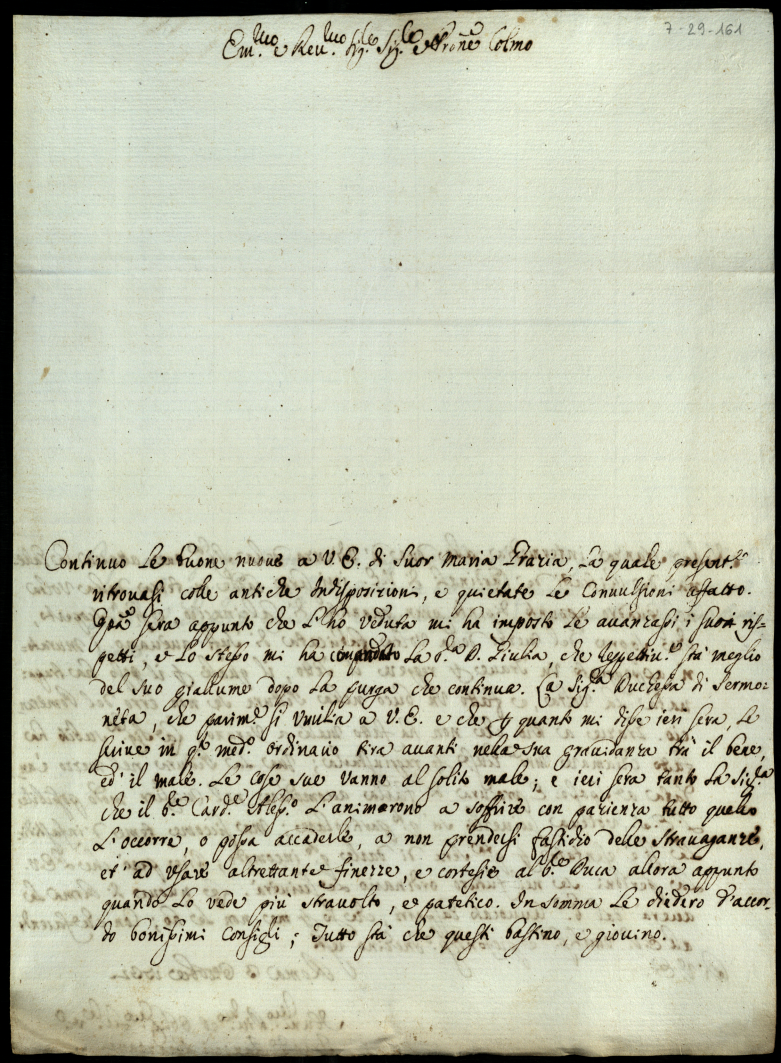 7-29-161
Em.mo e Reu.mo Sig.re Sig.re e Prone Colmo
Continuo le buone nuove a V. E. di Suor Maria Grazia, la quale present.e
ritrovasi colle antiche Indisposizioni, e quietate le Convulsioni affatto.
Qta sera appunto che l'ho veduta mi ha imposto le avanzassi i suoi ris-
petti, e lo stesso mi ha comandato la S.a D. Giulia, che respettiu.e stà meglio
del suo giallume dopo la purga che continua. La Sig.ra Duchessa di Sermo-
neta, che parim.e si umilia a V. E. e che p quanto mi disse ieri sera, le
scrive in q.o med.o ordinario tira avanti nella sua gravidanza trà il bene,
ed' il male. Le cose sue vanno al solito male; e ieri sera tanto la Sig.ra
che il S.r Card.e Aless.o l'animarono a soffrire con pazienza tutto quello
l'occorre, o possa accaderle, a non prendersi fastidio delle stravaganze,
et' ad usare altrettante finezze, e cortesie al S.r Duca allora appunto
quando lo vede più stravolto, e patetico. In somma le diedero d'accor-
do bonissimi consigli; Tutto stà che questi bastino, e giovino.